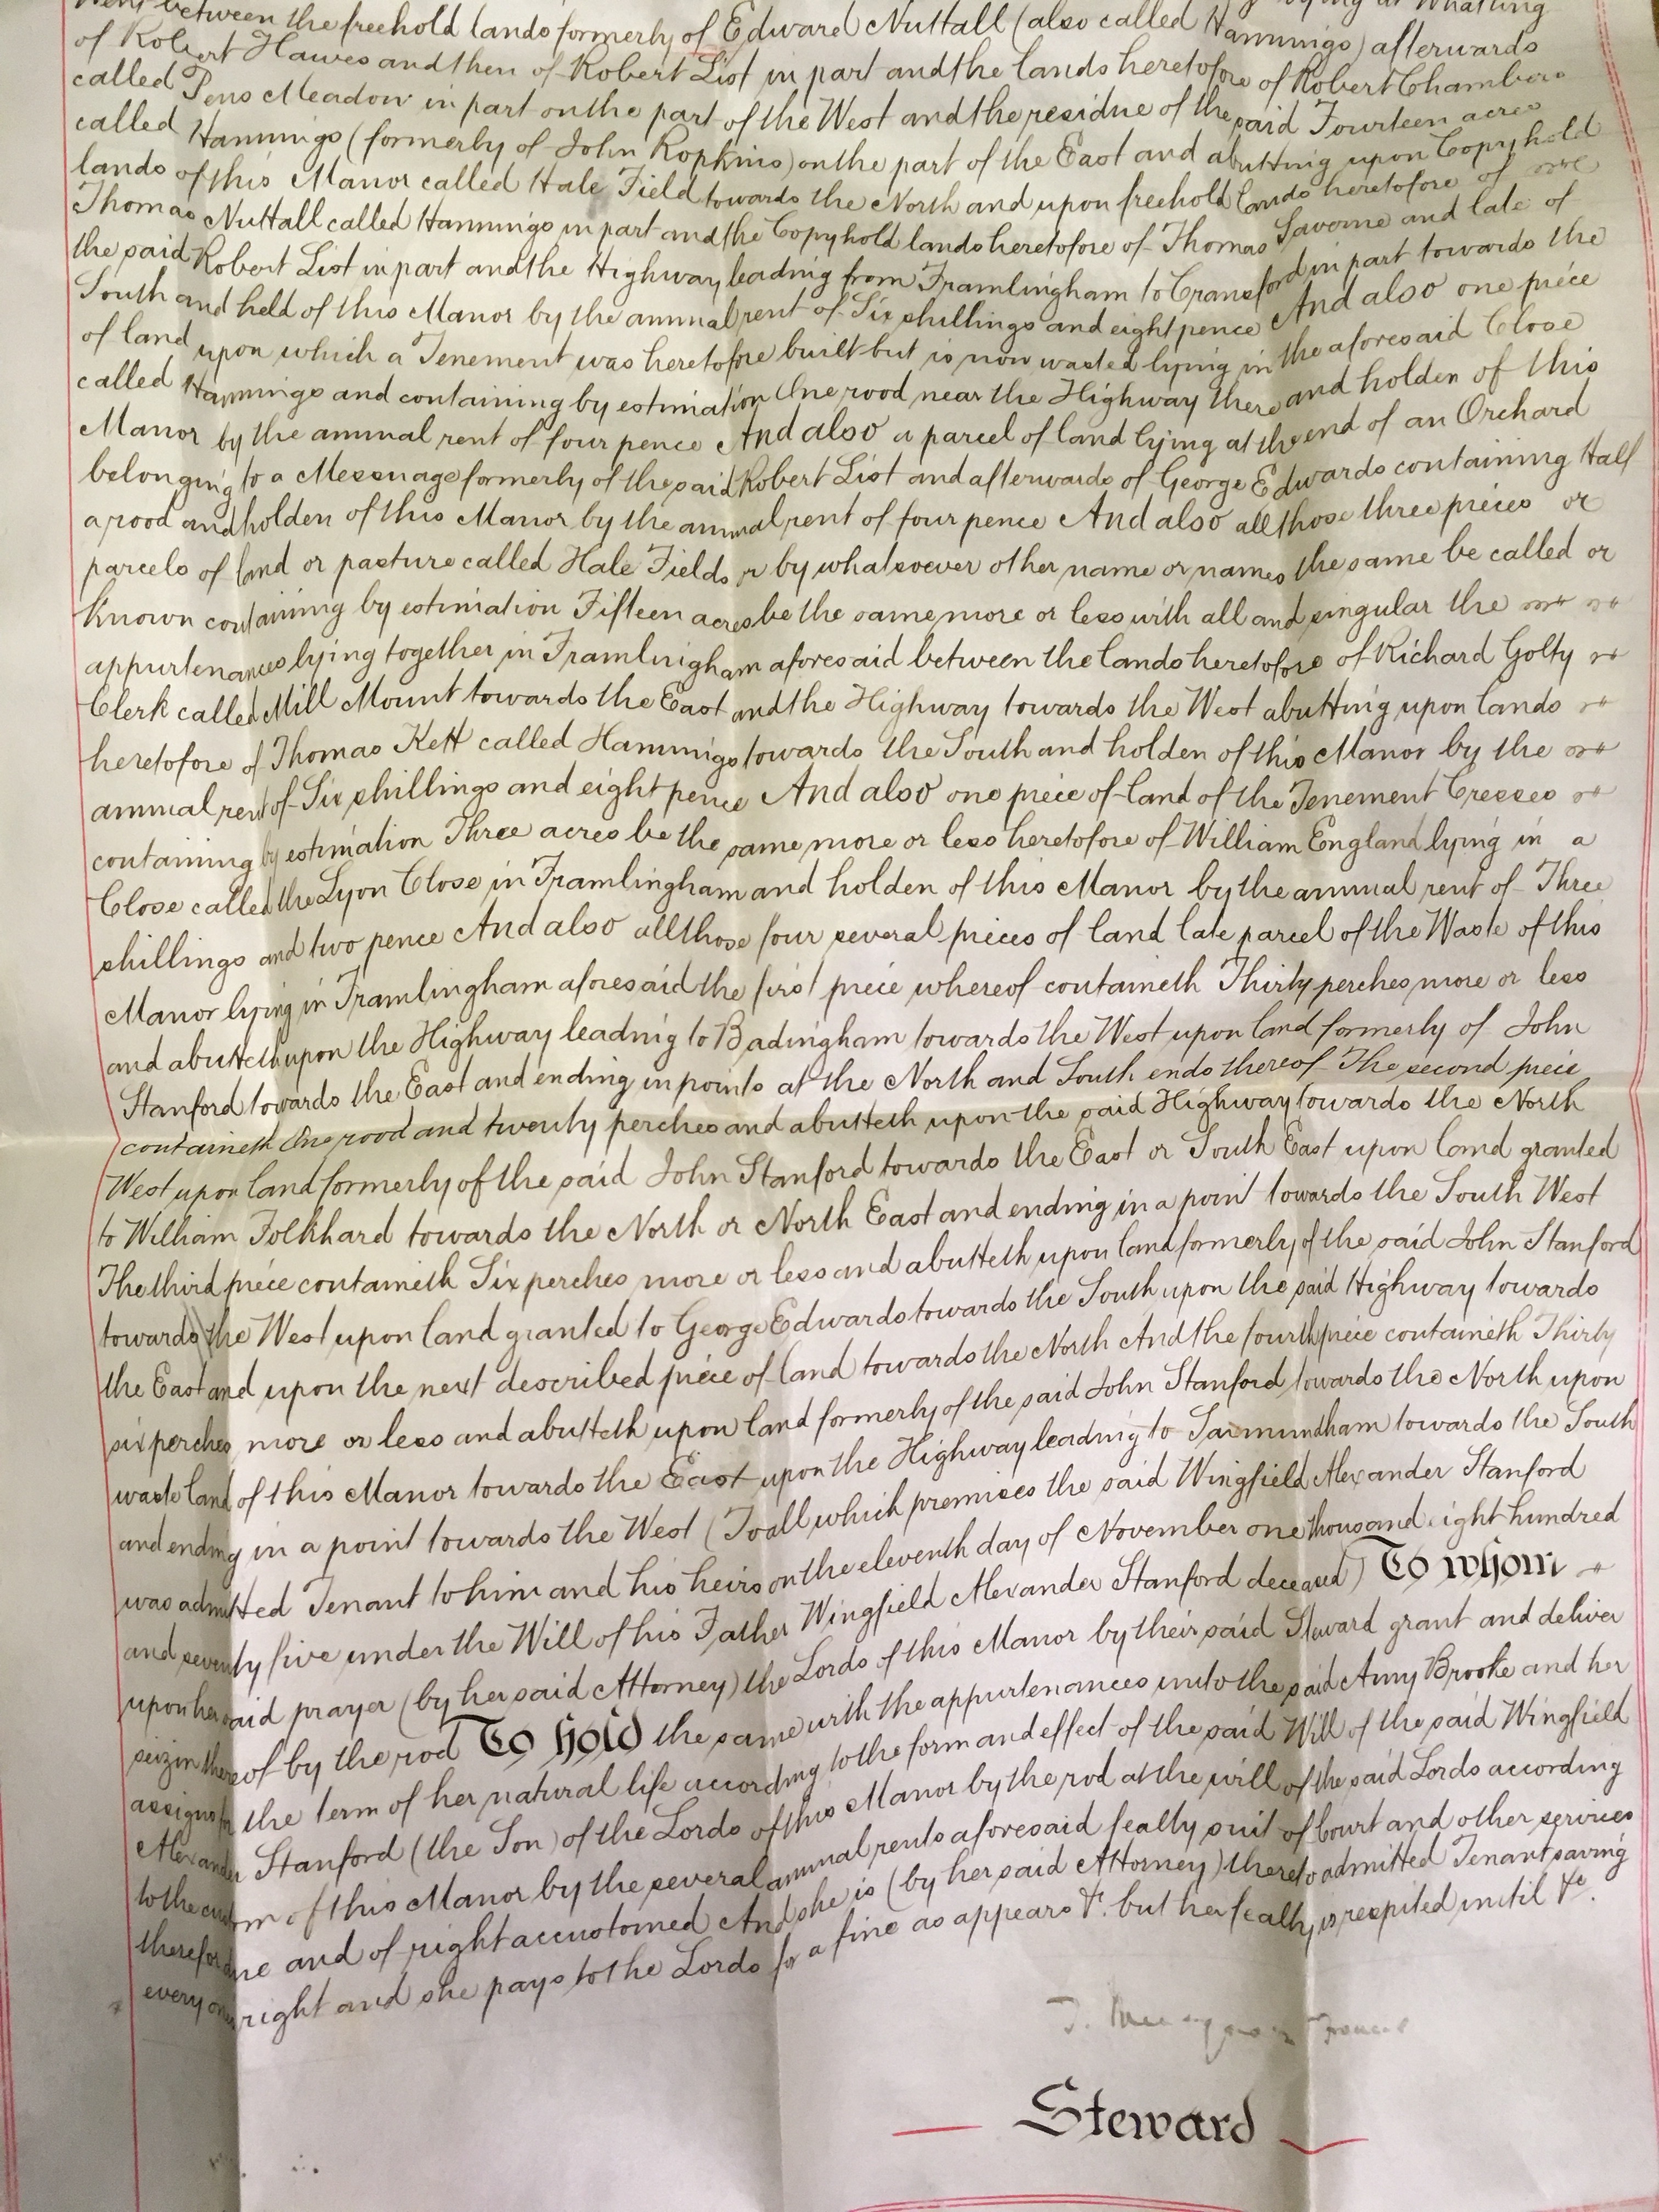 between the freehold lands formerly of Edward Nuttall (also called Hammings) afterwards
of Robert Hawes and then of Robert List in part and the lands heretofore of Robert Chambers
called Pens Meadow in part on the part of the West and the residue of the said Fourteen acres
called Hammings (formerly of John Hopkins) on the part of the East and abutting upon Copyhold
lands of this Manor called Hale Field towards the North and upon freehold lands heretofore of
Thomas Nuttall called Hammings in part and the Copyhold lands heretofore of Thomas Saverne and late of
the said Robert List in part and the Highway leading from Framlingham to Cransford in part towards the
South and held of this Manor by the annual rent of Six shillings and eight pence And also one piece
of land upon which a Tenement was heretofore built but is now wasted lying in the aforesaid Close
called Hammings and containing by estimation One rood near the Highway there and holden of this
Manor by the annual rent of four pence And also a parcel of land lying at the end of an Orchard
belonging to a Messuage formerly of the said Robert List and afterwards of George Edwards containing Half
a rood and holden of this Manor by the annual rent of four pence And also all those three pieces or
parcels of land or pasture called Hale Fields or by whatsoever other name or names the same be called or
known containing by estimation Fifteen acres be the same more or less with all and singular the
appurtenances lying together in Framlingham aforesaid between the lands heretofore of Richard Golty
Clerk called Mill Mount towards the East and the Highway towards the West abutting upon lands
heretofore of Thomas Kett called Hammings towards the South and holden of this Manor by the
annual rent of Six shillings and eight pence And also one piece of land of the Tenement Cresses
containing by estimation Three acres be the same more or less heretofore of William England lying in a
Close called the Lyon Close in Framlingham and holden of this Manor by the annual rent of Three
shillings and two pence And also all those four several pieces of land late parcel of the Waste of this
Manor lying in Framlingham aforesaid the first piece whereof containeth Thirty perches more or less
and abutteth upon the Highway leading to Badingham towards the West upon land formerly of John
Stanford towards the East and ending in points at the North and South ends thereof The second piece
containeth One rood and twenty perches and abutteth upon the said Highway towards the North
West upon land formerly of the said John Stanford towards the East or South East upon land granted
to William Folkhard towards the North or North East and ending in a point towards the South West
The third piece containeth Six perches more or less and abutteth upon land formerly of the said John Stanford
towards the West upon land granted to George Edwards towards the South upon the said Highway towards
the East and upon the next described piece of land towards the North And the fourth piece containeth Thirty
six perches more or less and abutteth upon land formerly of the said John Stanford towards the North upon
waste land of this Manor towards the East upon the Highway leading to Saxmundham towards the South
and ending in a point towards the West (To all which premises the said Wingfield Alexander Stanford
was admitted Tenant to him and his heirs on the eleventh day of November one thousand eight hundred
and seventy five under the Will of his Father Wingfield Alexander Stanford deceased) To whom
upon her said prayer (by her said Attorney) the Lords of this Manor by their said Steward grant and deliver
seizin thereof by the rod To hold the same with the appurtenances unto the said Amy Brooke and her
assigns for the term of her natural life according to the form and effect of the said Will of the said Wingfield
Alexander Stanford (the Son) of the Lords of this Manor by the rod at the will of the said Lords according
to the custom of this Manor by the several annual rents aforesaid fealty suit of Court and other services
therefor due and of right accustomed And she is (by her said Attorney) thereto admitted Tenant saving
every ones right and she pays to the Lords for a fine as appears &c. but her fealty is respited until &c.
Steward